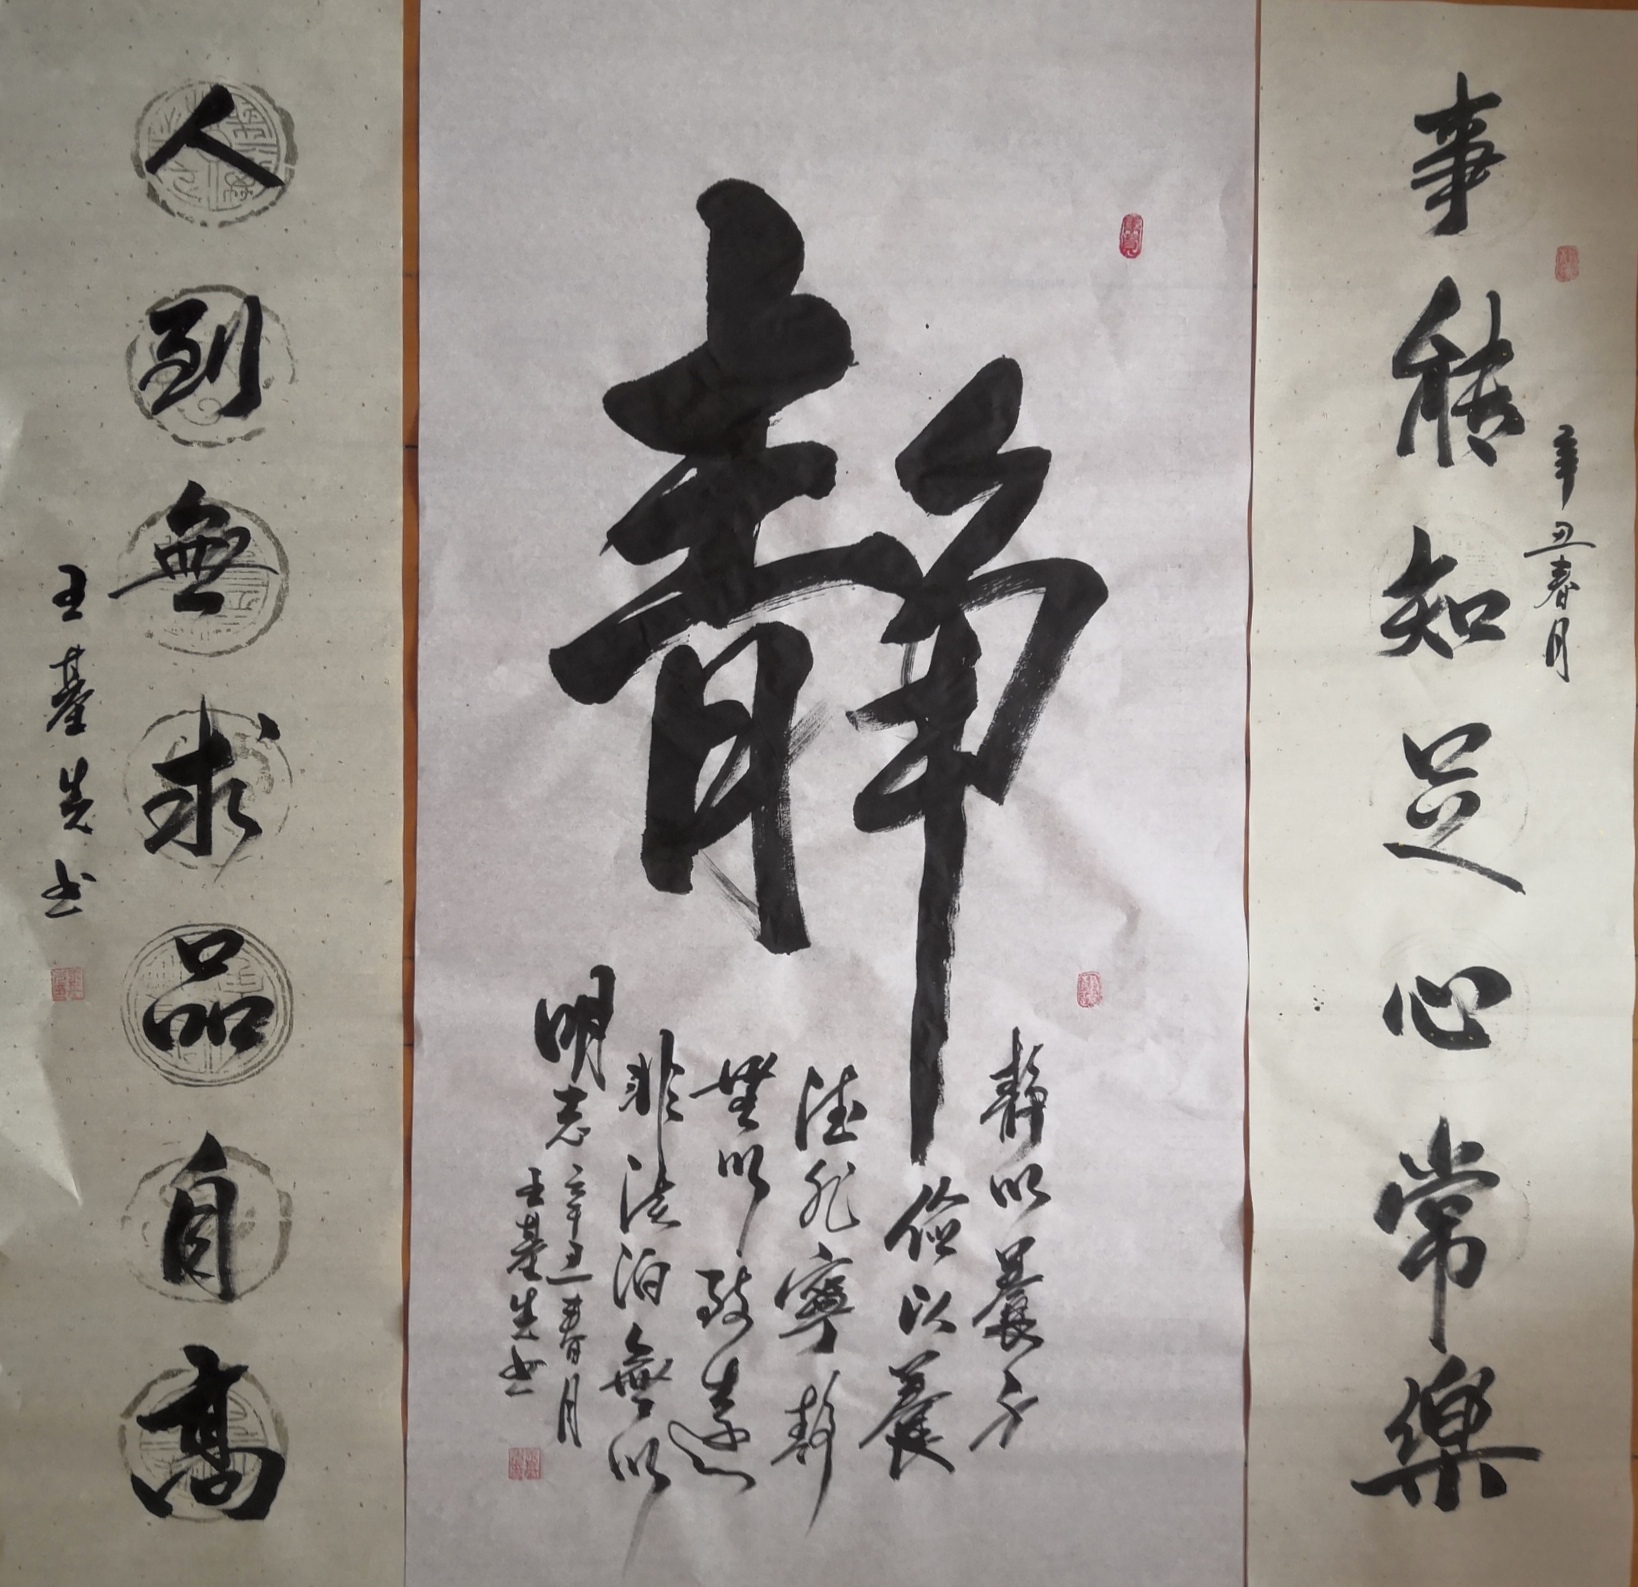 事能知足心常樂
辛丑春月
静
静以養身
儉以養
德非寧静
無以致遠
非淡泊無以
明志
辛丑春月
王基生书
人到無求品自高
王基先书